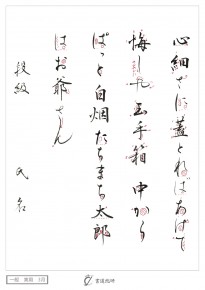 心細さに蓋とればあけて
悔しや玉手箱中から
ぱっと白烟たちまち太郎
はお爺さん
段級 氏名
一般 書道